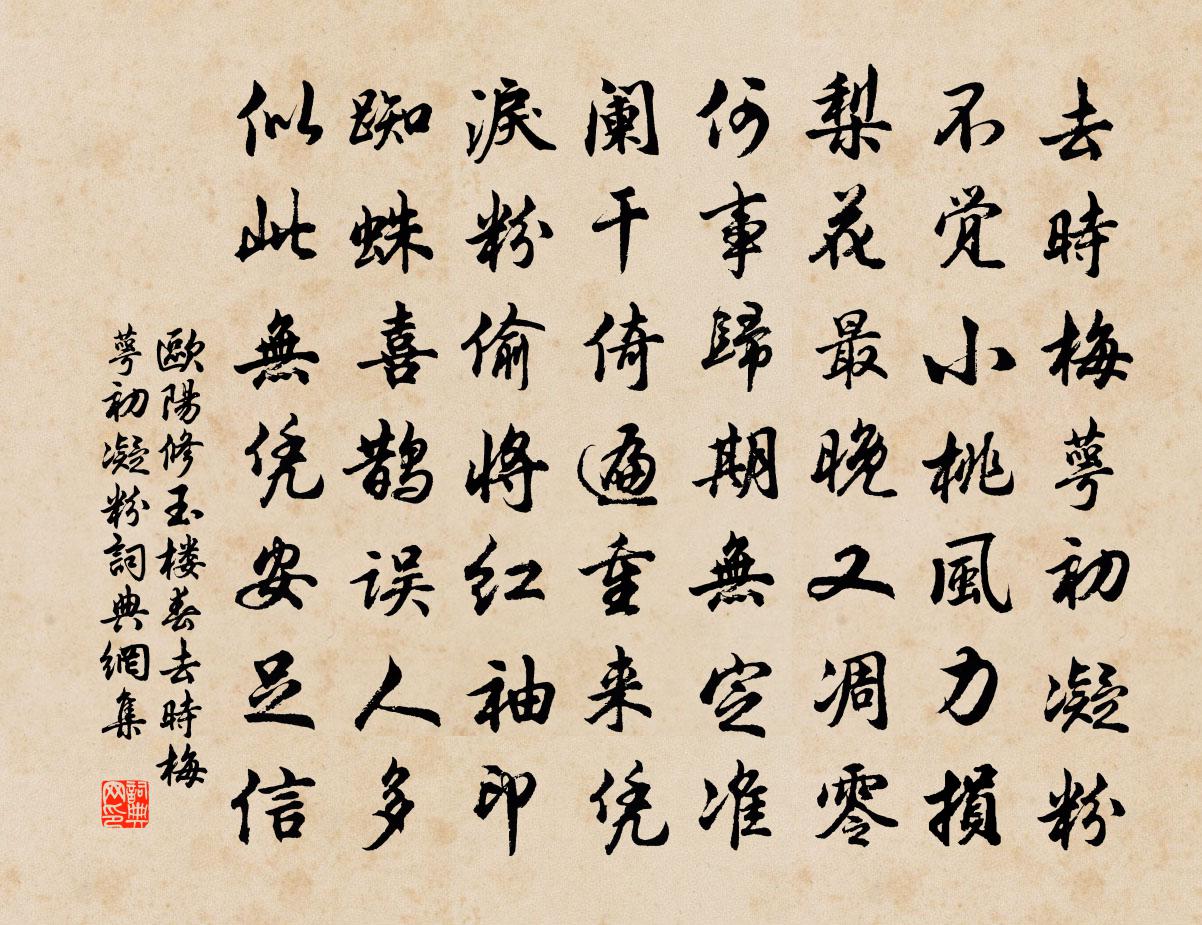 去時梅萼初凝粉
不觉小桃風力損
梨花最晚又凋零
何事歸期無定准
阑干倚遍重来凭
淚粉偷将红袖印
蜘蛛喜鹊误人多
似此無凭安足信
歐陽修玉楼春去時梅
萼初凝粉詞典網集
詞典网印